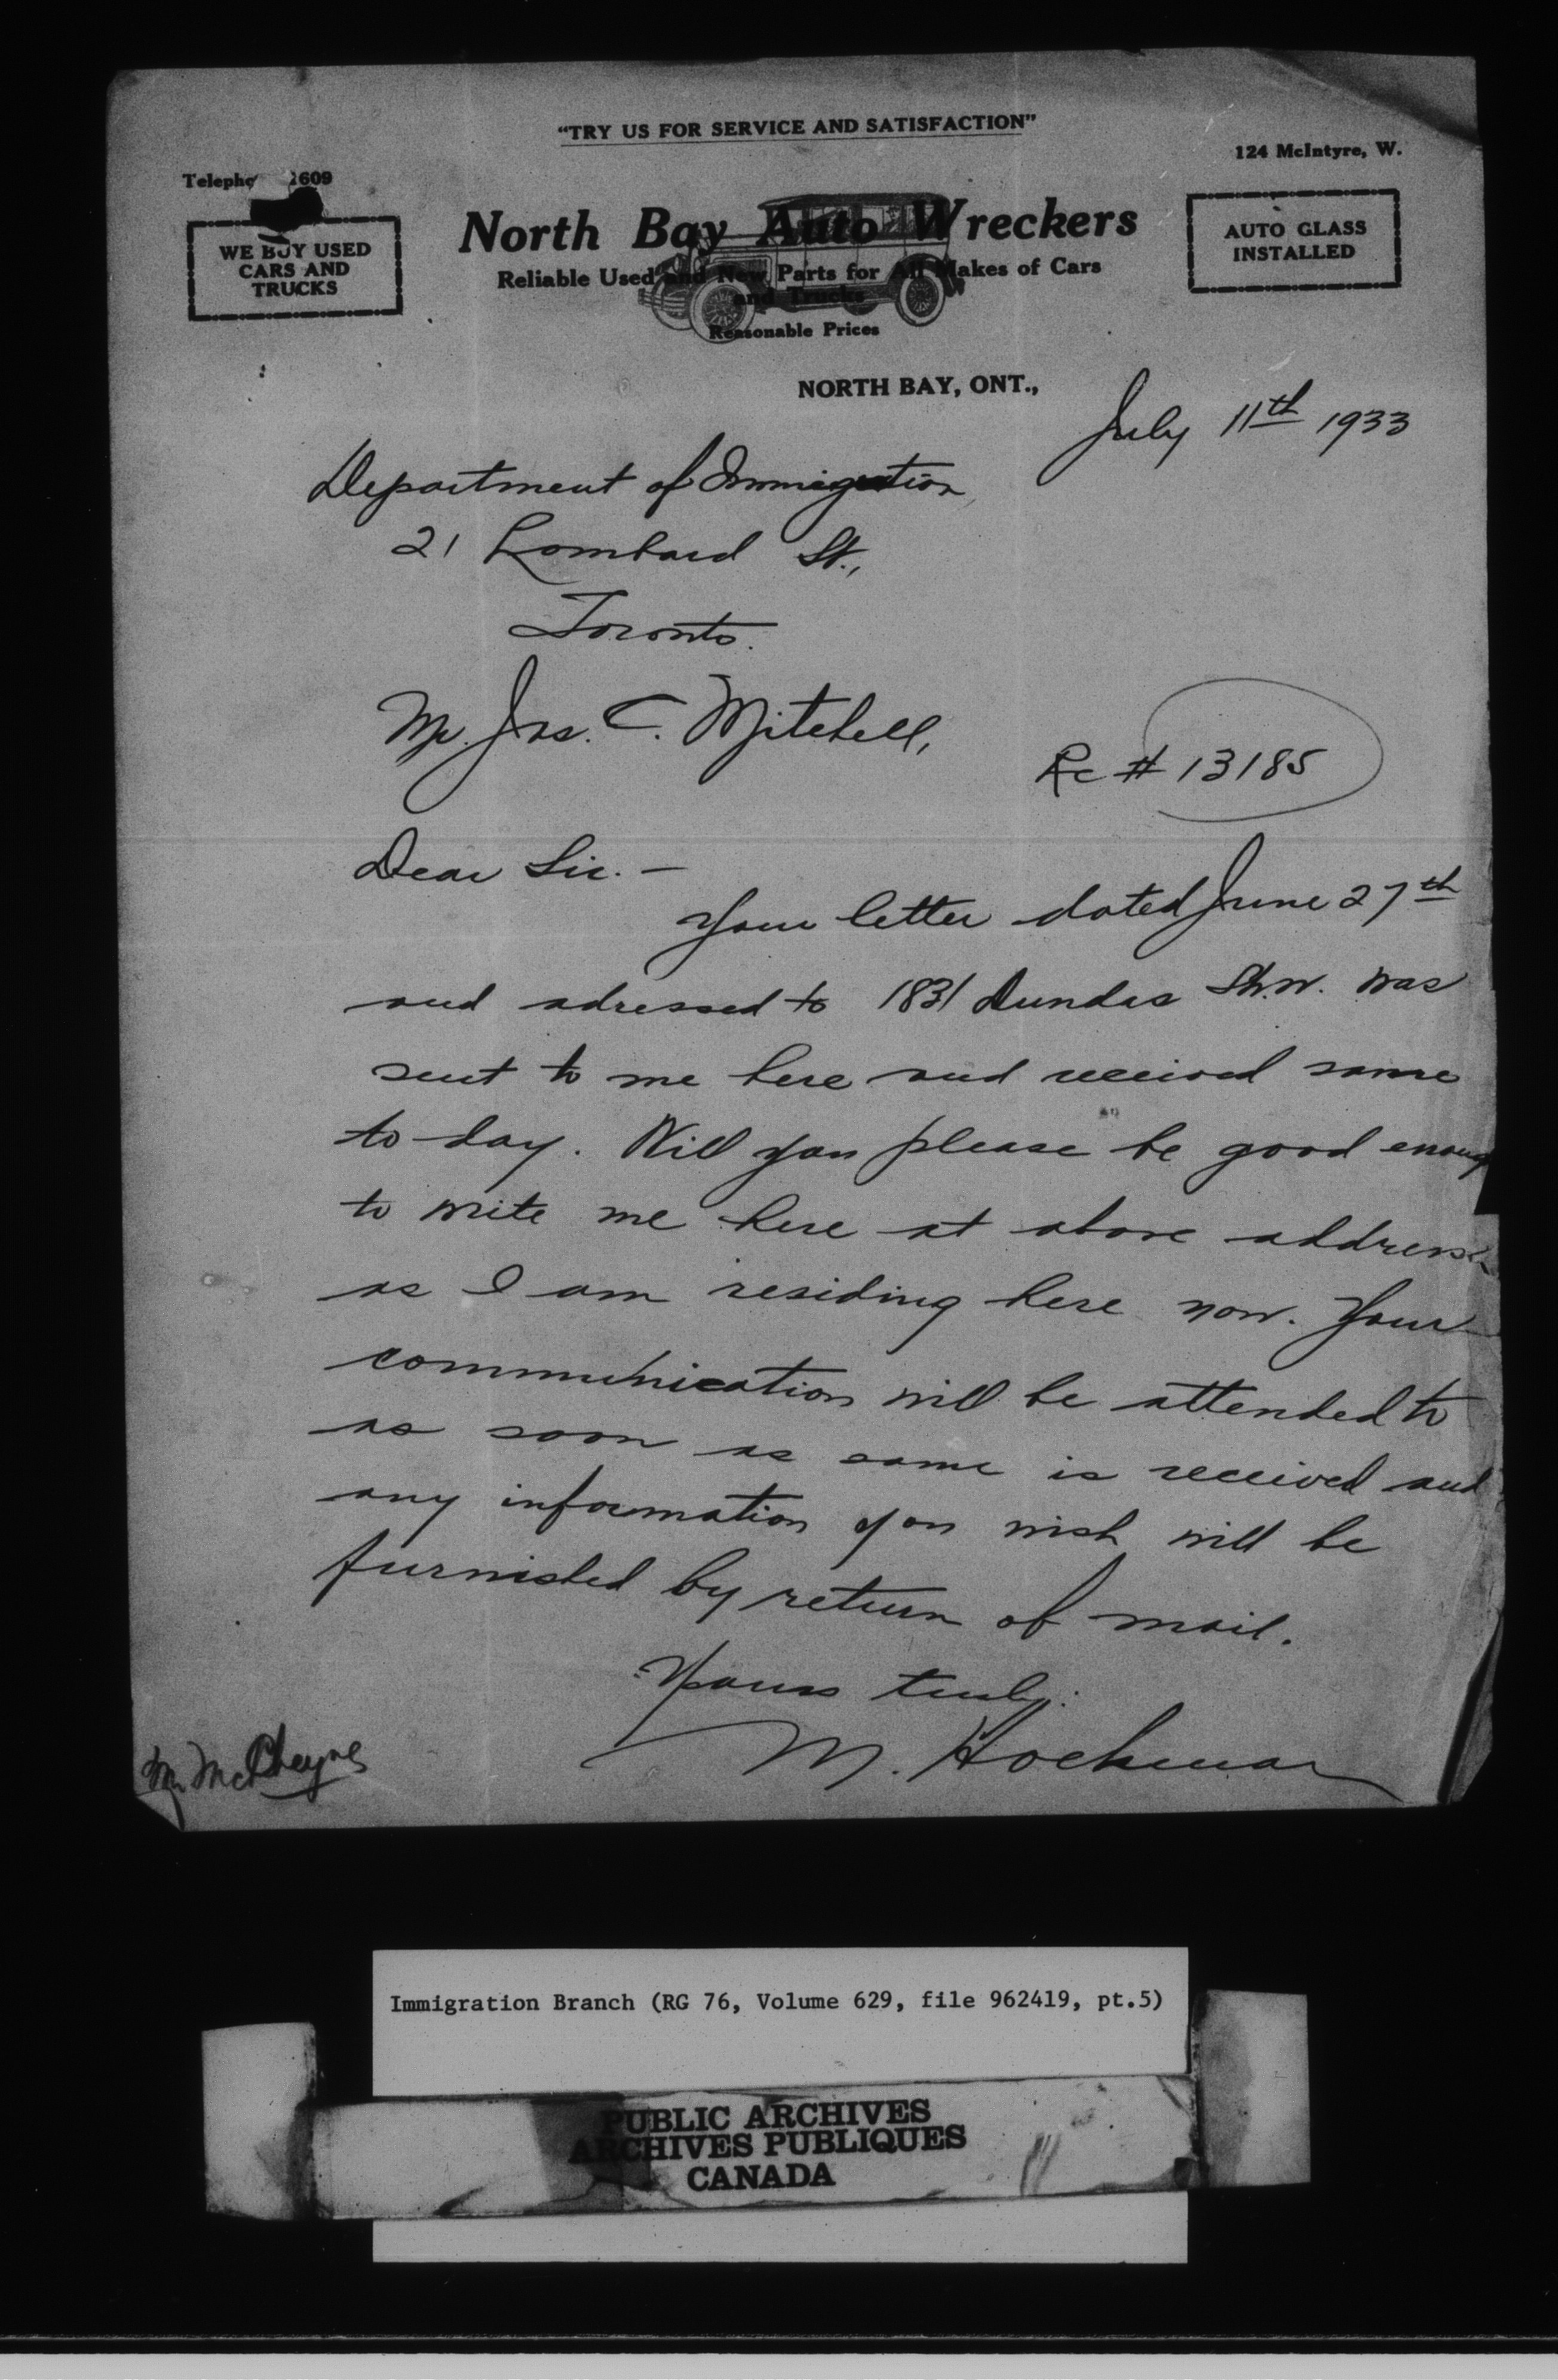 "TRY US FOR SERVICE AND SATISFACTION"
124 McIntyre, W.
Telepho 1609
WE BUY USED
CARS AND
TRUCKS
North Bay Auto Wreckers
Reliable Used and New Parts for All Makes of Cars
and Trucks
Reasonable Prices
AUTO GLASS
INSTALLED
NORTH BAY, ONT.,
July 11th 1933
Department of Immigration,
21 Lombard St.,
Toronto.
Mr. Jas. C. Mitchell,
Re # 13185
Dear Sir. —
Your letter dated June 27th
and adressed to 1831 Dundas St. W. was
sent to me here and received same
to-day. Will you please be good enoug
to write me here at above address
as I am residing here now. Your
communication will be attended to
as soon as same is received and
any information you wish will be
furnished by return of mail.
Yours truly.
M. Hockman
Mr McCheyne
Immigration Branch (RG 76, Volume 629, file 962419, pt.5)
PUBLIC ARCHIVES
ARCHIVES PUBLIQUES
CANADA